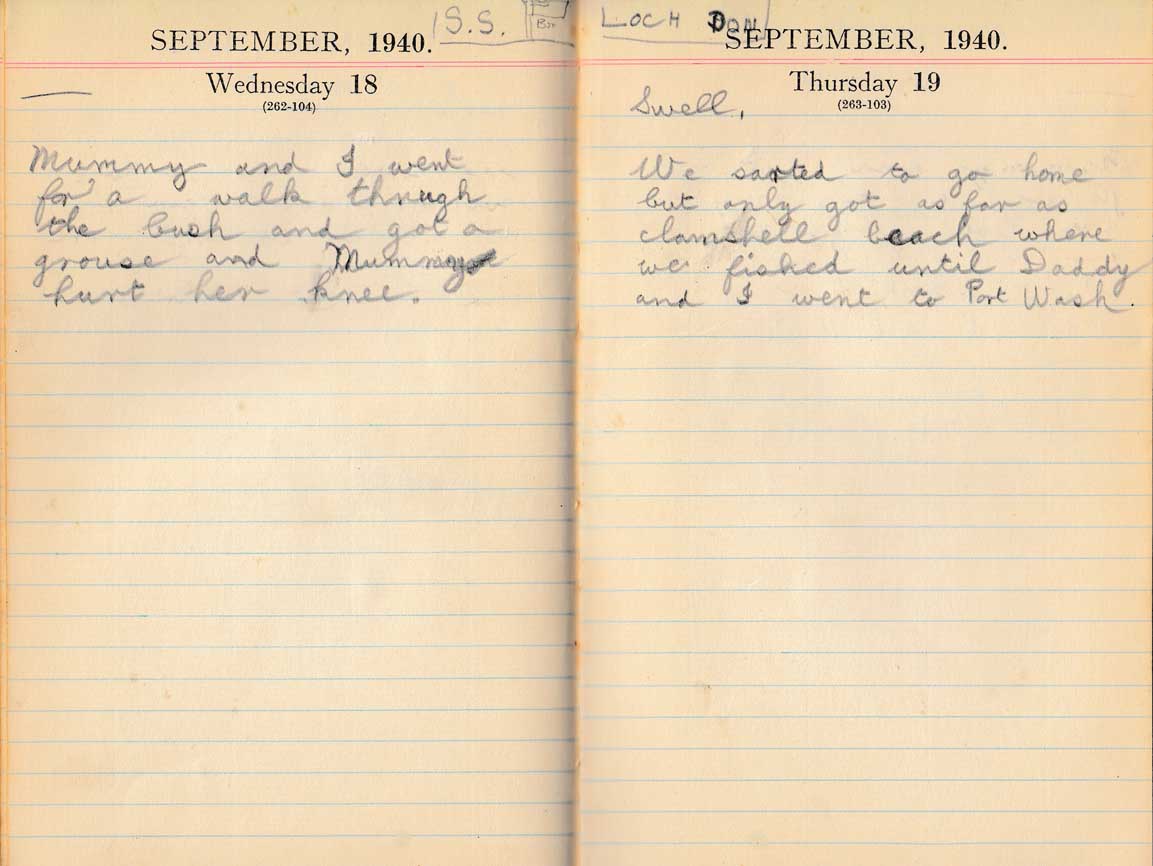 S.S.
SEPTEMBER, 1940.
Wednesday 18
(262-104)
Mummy and I went
for a walk through
the bush and got a
grouse and Mummy
hurt her knee.
LOCH DON
SEPTEMBER, 1940.
Thursday 19
(263-103)
Swell,
We sarted to go home
but only got as far as
clamshell beach where
we fished until Daddy
and I went to Port Wash.